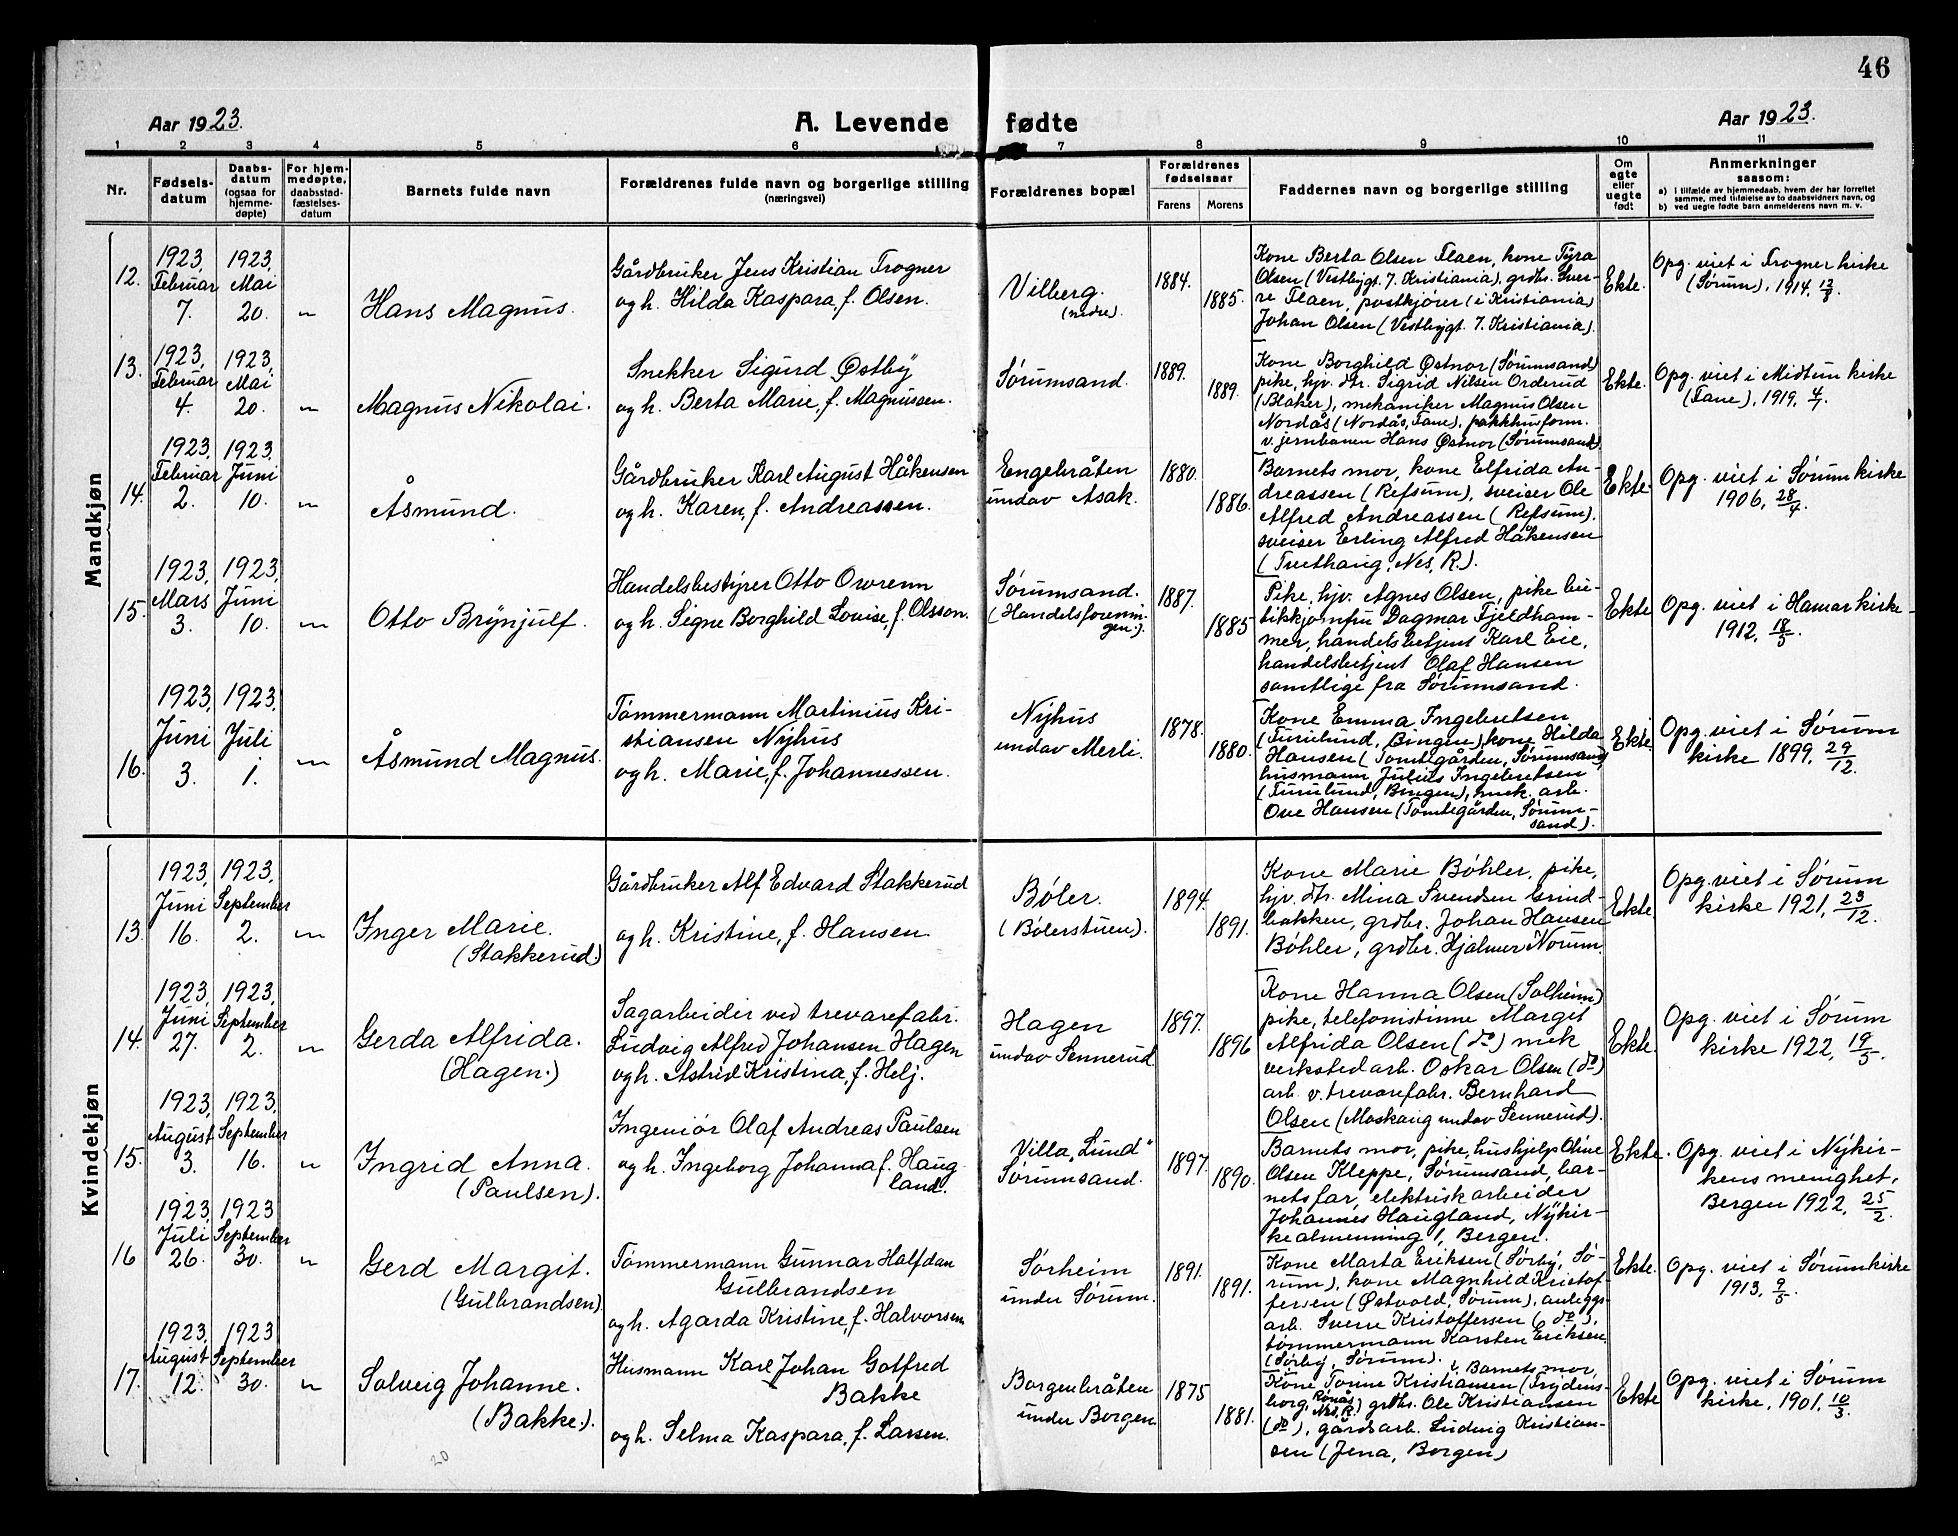 46
Aar 1923.
A. Levende fødte
Aar 1923.
1 2 3 4 5 6 7 8 9 10 11
Nr.
Fødsels-
datum
Daabs-
datum
(ogsaa for
hjemme-
døpte)
For hjem-
medøpte,
daabsstad-
fæstelses-
datum
Barnets fulde navn
Forældrenes fulde navn og borgerlige stilling
(næringsvei)
Forældrenes bopæl
Forældrenes
fødselsaar
Farens
Morens
Faddernes navn og borgerlige stilling
Om
egte
eller
uegte
født
Anmerkninger
saasom:
a) i tilfælde av hjemmedaab, hvem der har forrettet
samme, med tilføielse av to daabsvidners navn, og
b) ved uegte fødte barn anmelderens navn m. v.
Mandkjøn
12.
1923,
Februar
7.
1923,
Mai
20.
"
Hans Magnus.
Gårdbruker Jens Kristian Trogner
og h. Hilda Kaspara, f. Olsen.
Vilberg.
(nedre).
1884.
1885.
Kone Berta Olsen Flaen, kone Tyra
Olsen (Vestbygt. 7. Kristiania), grdbr. Sver-
re Flaen, postkjører (i Kristiania)
Johan Olsen (Vestbygt. 7. Kristiania).
Ekte.
Opg. viet i Frogner kirke
(Sørum), 1914, 13/8.
13.
1923,
Februar
4.
1923,
Mai
20.
"
Magnus Nikolai.
Snekker Sigurd Østby
og h. Berta Marie, f. Magnussen.
Sørumsand.
1889.
1889.
Kone Borghild Østnor (Sørumsand)
pike, hjv. dtr. Sigrid Nilsen Orderud
(Blaker), mekaniker Magnus Olsen
Nordås (Nordås, Fane), pakkhusform.
v. jernbanen Hans Østnor (Sørumsand)
Ekte.
Opg. viet i Midtun kirke
(Fane), 1919, 4/7.
14.
1923,
Februar
2.
1923,
Juni
10.
"
Åsmund.
Gårdbruker Karl August Håkensen
og h. Karen, f. Andreassen.
Engebråten
undav Asak.
1880.
1886.
Barnets mor, kone Elfrida An-
dreassen (Refsum), sveiser Ole
Alfred Andreassen (Refsum).
sveiser Erling Alfred Håkensen
(Tveithaug, Nes, R.).
Ekte.
Opg. viet i Sørum kirke
1906, 28/4.
15.
1923,
Mars
3.
1923,
Juni
10.
"
Otto Brynjulf.
Handelsbestyrer Otto Owrenn
og h. Signe Borghild Lovise, f. Olsson.
Sørumsand.
(Handelsforenin-
gen.).
1887.
1885
Pike, hjv. Agnes Olsen, pike bu-
tikkjomfru Dagmar Fjeldham-
mer, handelsbetjent Karl Eie,
handelsbetjent Olaf Hansen
samtlige fra Sørumsand.
Ekte
Opg. viet i Hamar kirke
1912, 18/5.
16.
1923,
Juni
3.
1923,
Juli
1.
"
Åsmund Magnus.
Tømmermann Martinius Kri-
stiansen Nyhus
og h. Marie, f. Johannessen.
Nyhus
undav Merli.
1878.
1880.
Kone Emma Ingebretsen
(Furulund, Bingen), kone Hilda
Hansen (Tomtegården, Sørumsand)
husmann Julius Ingebretsen
(Furulund, Bingen), mek. arb.
Ove Hansen (Tomtegården, Sørum-
sand).
Ekte.
Opg. viet i Sørum
kirke 1899, 29/12.
Kvindekjøn
13.
1923,
Juni
16.
1923,
September
2.
"
Inger Marie.
(Stakkerud)
Gårdbruker Alf Edvard Stakkerud
og h. Kristine, f. Hansen.
Bøler.
(Bølerstuen).
1894.
1891.
Kone Marie Bøhler, pike,
hjv. dtr. Mina Svendsen Grind-
bakken, grdbr. Johan Hansen
Bøhler, grdbr. Hjalmar Norum.
Ekte.
Opg. viet i Sørum
kirke 1921, 23/12.
14.
1923,
Juni
27.
1923,
September
2.
"
Gerda Alfrida.
(Hagen.)
Sagarbeider ved trevarefabr.
Ludvig Alfred Johansen Hagen
og h. Astrid Kristina, f. Helj.
Hagen
undav Sennerud
1897.
1896
Kone Hanna Olsen (Solheim)
pike, telefonistinne Margit
Alfrida Olsen (do) mek
verksted arb. Oskar Olsen (do)
arb. v. trevarefabr. Bernhard
Olsen (Moskaug undav Sennerud).
Ekte.
Opg. viet i Sørum
kirke 1922, 19/5.
15.
1923,
August
3.
1923,
September
16.
"
Ingrid Anna.
(Paulsen).
Ingeniør Olaf Andreas Paulsen
og h. Ingeborg Johanna f. Haug-
land.
Villa „Lund"
Sørumsand.
1897.
1890.
Barnets mor, pike, hushjelp Oline
Olsen Kleppe, Sørumsand, bar-
nets far, elektrisk arbeider
Johannes Haugland, Nykir-
kealmenning 1, Bergen.
Ekte.
Opg. viet i Nykir-
kens menighet,
Bergen 1922, 25/2.
16
1923,
Juli
26.
1923
September
30.
"
Gerd Margit.
(Gulbrandsen).
Tømmermann Gunnar Halfdan
Gulbrandsen
og h. Agarda Kristine, f. Halvorsen
Sørheim
under Sørum.
1891.
1891.
Kone Marta Eriksen (Sørby, Sø-
rum), kone Magnhild Kristof-
fersen (Østvold, Sørum), anleggs-
arb. Sverre Kristoffersen (do),
tømmermann Karsten Eriksen
(Sørby, Sørum).
Ekte.
Opg. viet i Sørum kirke
1913, 9/5.
17.
1923,
August
12.
1923
September
30.
"
Solveig Johanne.
(Bakke.).
Husmann Karl Johan Gotfred
Bakke
og h. Selma Kaspara, f. Larsen.
Borgenbråten
under Borgen
1875
1881.
Barnets mor,
Kone Torine Kristiansen (Frydens-
borg, Rånås, Nes, R.) grdbr. Ole Kristiansen
(do), gårdsarb. Ludvig Kristian-
sen (Jena, Borgen)
Ekte
Opg. viet i Sørum
kirke, 1901, 10/3.
20